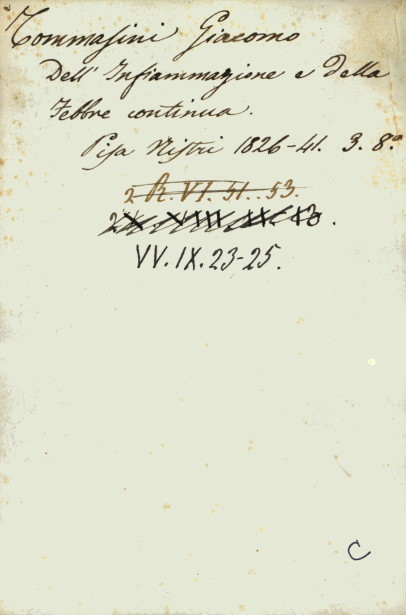 Tommasini Giacomo
Dell' Infiammazione e della
Febbre continua.
Pisa Nistri 1826-41. 3. 8.º
2 R. VI. 51..53.
VV. IX. 23-25.
C